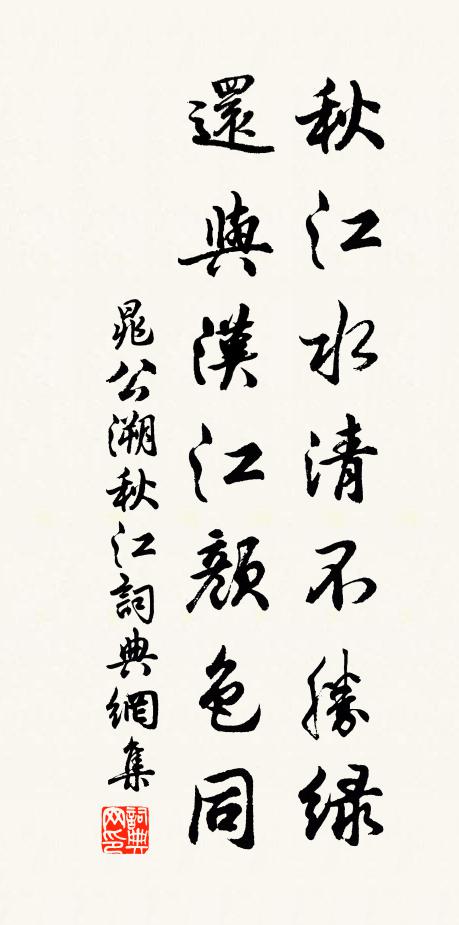 秋江水清不勝綠
還與漢江顔色同
晁公溯秋江詞典網集
詞典网印